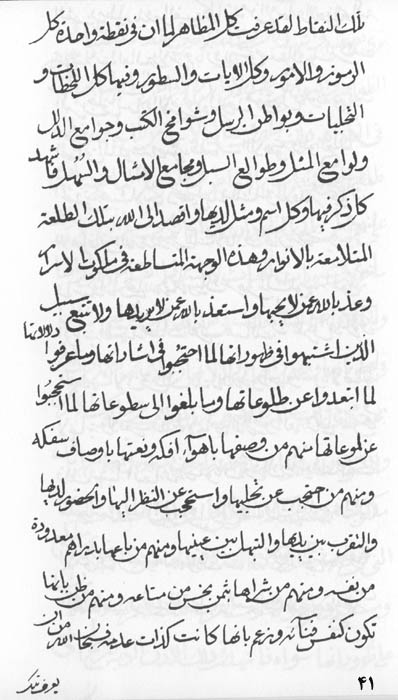 تلك النقاط لقد عرفت كل المظاهر لما ان فی نقطة واحدة كل
الرموز والامور وكل الايات والسطور وفيها كل اللحظات و
التجليات وبواطن الرسل وشوامخ الكتب وجوامع الدلال
ولوامع المثل وطوالع السبل ومجامع الامثال والنهل فاشهد
كل ذكر فيها وكل اسم ومثل لديها واقصد الى الله بتلك الطلعة
المتلامعة بالانوار وهذه الوجهة المتساطعة فی ملكوت الاسرار
وعذ بالله عن لا يحبها واستعذ بالله عن لا يريدها ولا تتبع سبيل
الذين اشتبهوا فی ظهوراتها لما احتجبوا فی اشاراتها وما عرفوا دلالاتها
لما ابتعدوا عن طلوعاتها وما بلغوا الى سطوعاتها لما استحجبوا
عن لموعاتها منهم من وصفها باهواء افكه ونعتها باوصاف سفكه
ومنهم من احتجب عن تجليها واستحجب عن النظر اليها والحضور لديها
والتقرب بين يديها والتهلل بين عينيها ومنهم من باعها بدراهم معدودة
من نفسه ومنهم من شراها بثمن بخس من متاعه ومنهم من ظن بانها
تكون كنفس فنائه وزعم بانها كانت كذات عدمه فسبحان الله من ان
يعرف تلك
۴۱